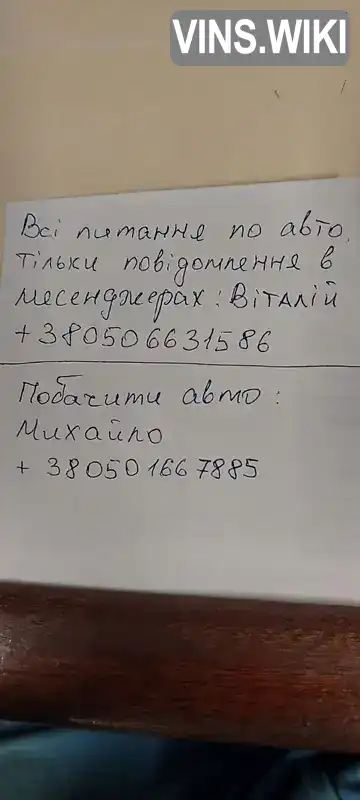 VINS.WIKI
Всі питання по авто,
тільки повідомлення в
месенджерах: Віталій
+380506631586
Побачити авто:
Михайло
+380501667885